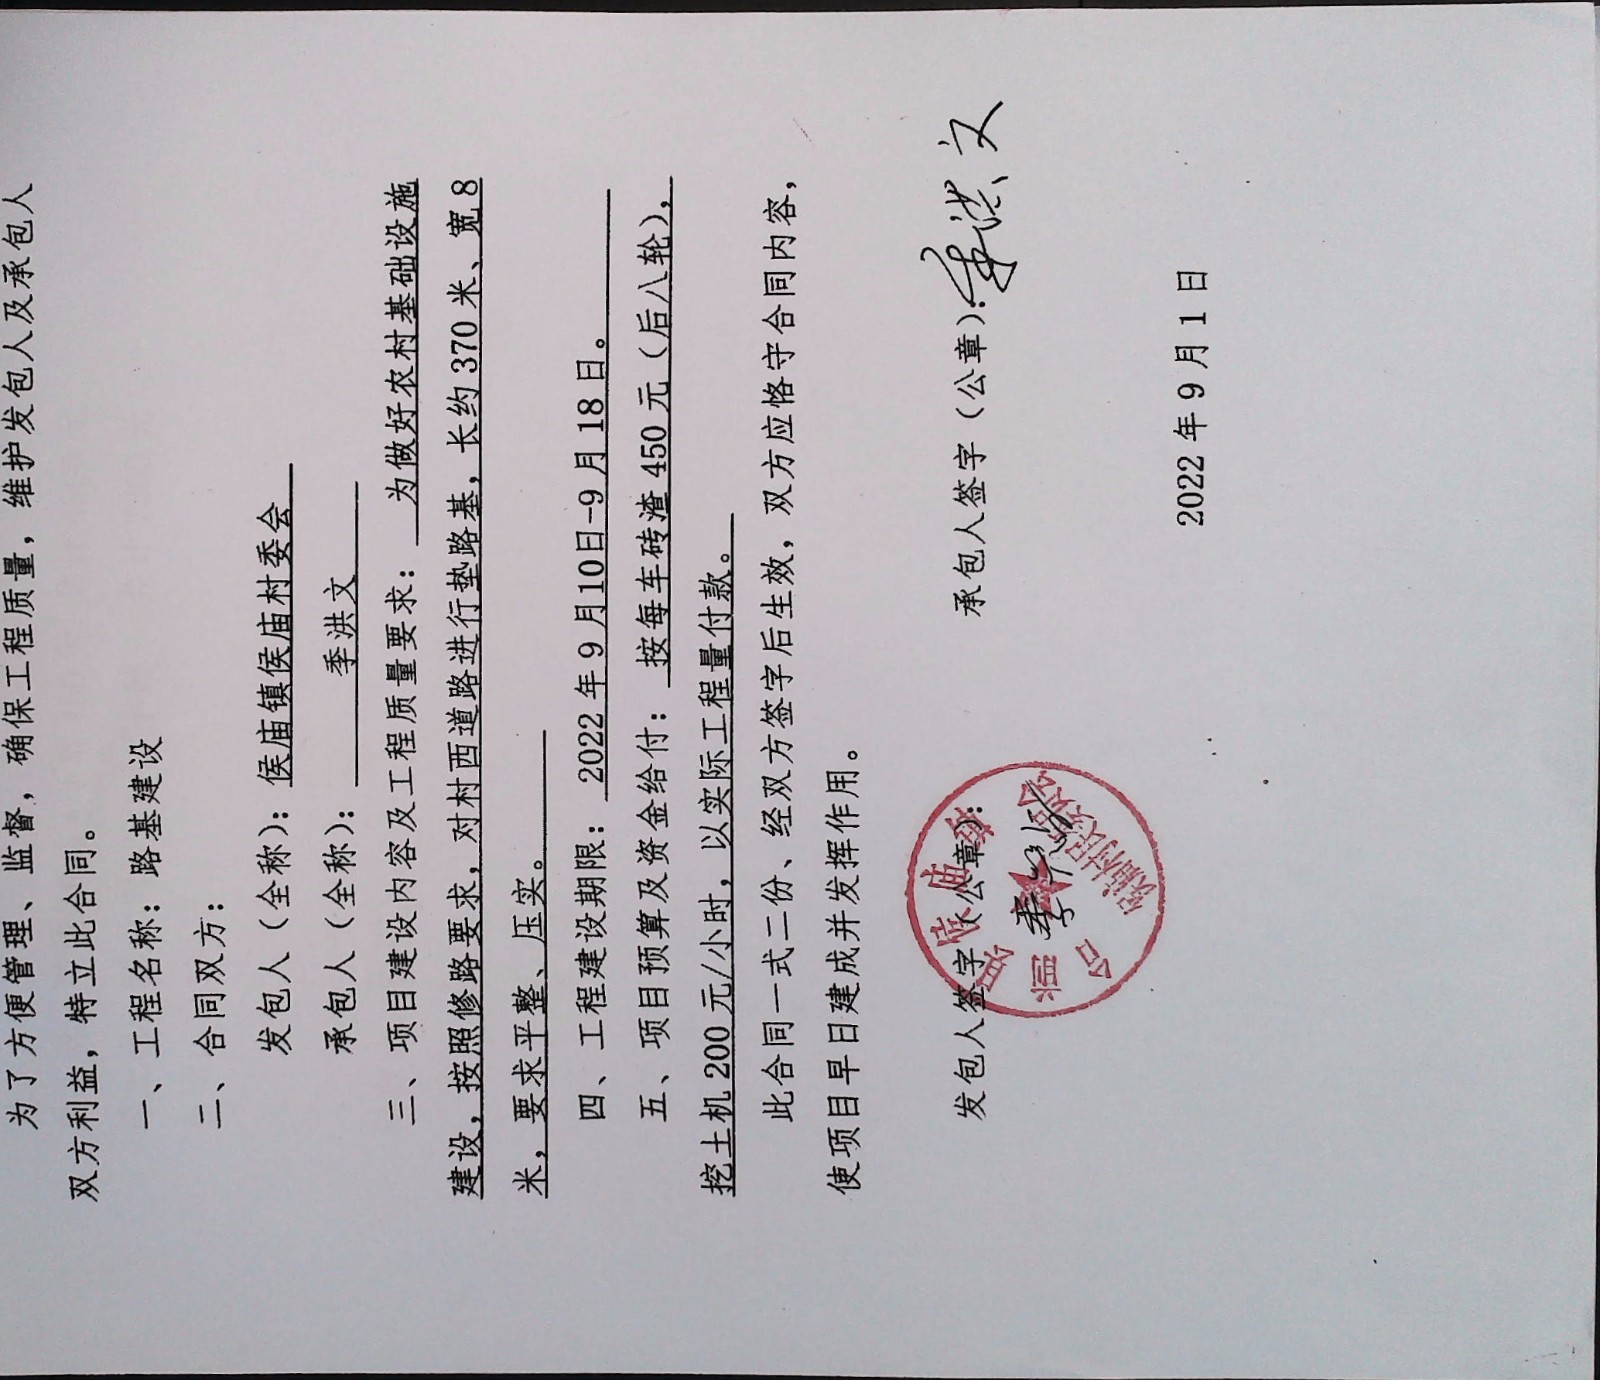 为了方便管理、监督，确保工程质量，维护发包人及承包人
双方利益，特立此合同。
一、工程名称：路基建设
二、合同双方：
发包人（全称）：侯庙镇侯庙村委会
承包人（全称）：季洪文
三、项目建设内容及工程质量要求：为做好农村基础设施
建设，按照修路要求，对村西道路进行垫路基，长约370米、宽8
米，要求平整、压实。
四、工程建设期限：2022年9月10日-9月18日。
五、项目预算及资金给付：按每车砖渣450元（后八轮），
挖土机200元/小时，以实际工程量付款。
此合同一式二份、经双方签字后生效，双方应恪守合同内容，
使项目早日建成并发挥作用。
发包人签字（公章）：
承包人签字（公章）：季洪文
台前县侯庙镇
侯庙村村民委员会
2022年9月1日